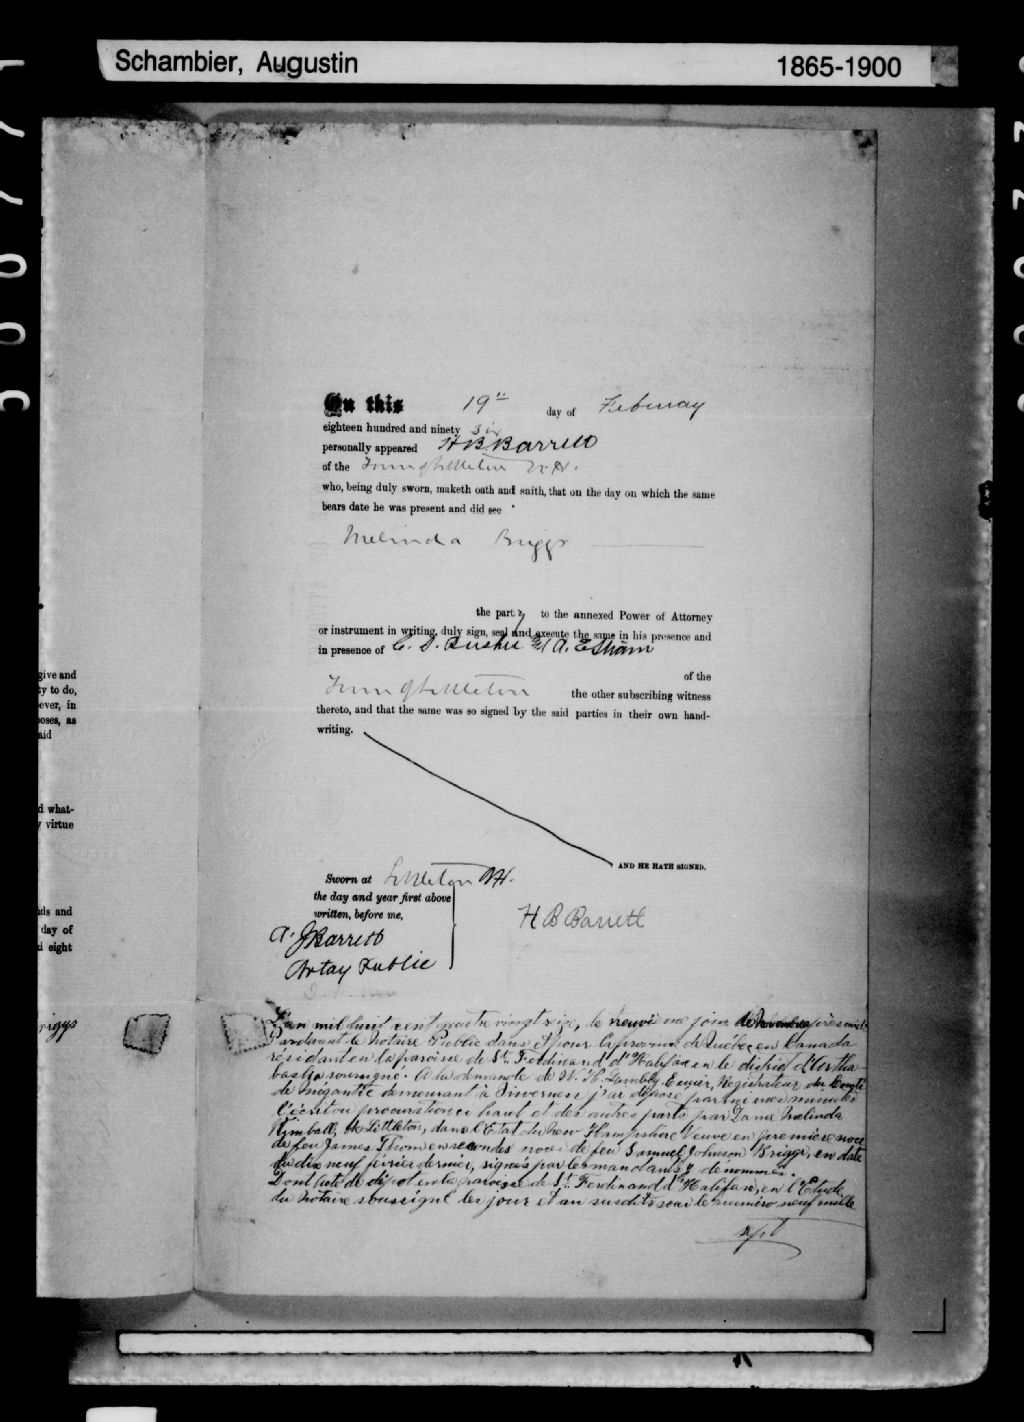 Schambier, Augustin
1865-1900
give and
ty to do,
ever, in
poses, as
aid
d what-
y virtue
ds and
day of
d eight
riggs
On this 19th day of February
eighteen hundred and ninety six
personally appeared H B Barrett
of the Town of Littleton N.H.
who, being duly sworn, maketh oath and saith, that on the day on which the same
bears date he was present and did see
Melinda Briggs
the party to the annexed Power of Attorney
or instrument in writing, duly sign, seal and execute the same in his presence and
in presence of C. D.
of the
Town of Littleton the other subscribing witness
thereto, and that the same was so signed by the said parties in their own hand-
writing.
AND HE HATH SIGNED.
Sworn at Littleton NH.
the day and year first above
written, before me,
H B Barrett
A. J Barrett
Notay Public
L'an mil huit cent quatre vingt seize, le neuvième jour
Pardevant le Notaire Public dans et pour la province de Québec en Canada
résidant en la paroisse de St. Ferdinand d'Halifax en le district d'Artha-
baska soussigné. A la demande de W. H. Lambly Ecuier, Régistrateur du Comté
de Mégantic demeurant à Inverness j'ai déposé parmi mes minutes
l'écrit ou procuration ci haut et des autres parts par Dame Melinda
Kimball, de Littleton, dans l'Etat du New Hampshire Veuve en première noce
de feu James Thom en secondes noces de feu Samuel Johnson Briggs, en date
du dix neuf février dernier, signés par les mandants y dénommés.
Dont Acte de dépot en la paroisse de St. Ferdinand d'Halifax, en l'Etude
du Notaire soussigné les jour et an susdits sous le numéro neuf mille
sept